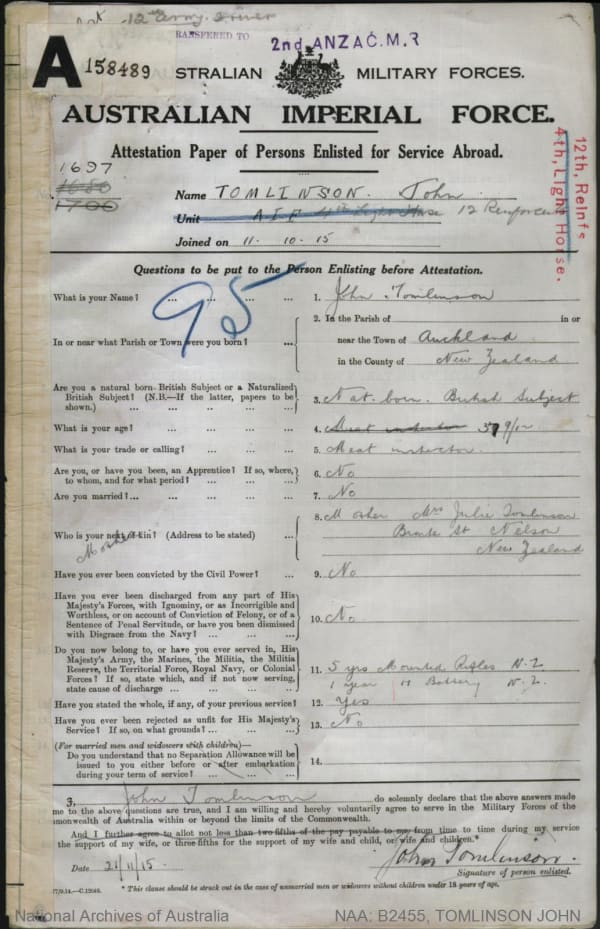 12th Army
TRANSFERED TO
2nd ANZAC. M.R
A 158489
STRALIAN MILITARY FORCES.
AUSTRALIAN IMPERIAL FORCE.
Attestation Paper of Persons Enlisted for Service Abroad.
12th, Reinfs
4th, Light Horse.
1697
1680
1700
Name TOMLINSON. John
Unit A I F 4th Light Horse 12 Reinforcem
Joined on 11. 10. 15
Questions to be put to the Person Enlisting before Attestation.
95
What is your Name? ... ... ... ... 1. John Tomlinson
2. In the Parish of in or
In or near what Parish or Town were you born? ... near the Town of Auckland
in the County of New Zealand
Are you a natural born British Subject or a Naturalized
British Subject? (N.B.—If the latter, papers to be
shown.) ... ... ... ... 3. Nat. born. British Subject
What is your age? ... ... ... ... 4. Meat inspector 9/12
What is your trade or calling? ... ... ... 5. Meat inspector.
Are you, or have you been, an Apprentice? If so, where,
to whom, and for what period? ... ... ... 6. No
Are you married? ... ... ... ... 7. No
Who is your next of kin? (Address to be stated) ... 8. Mother Mrs Julie Tomlinson
Mother
Bronte St Nelson
New Zealand
Have you ever been convicted by the Civil Power? ... 9. No
Have you ever been discharged from any part of His
Majesty's Forces, with Ignominy, or as Incorrigible and
Worthless, or on account of Conviction of Felony, or of a
Sentence of Penal Servitude, or have you been dismissed
with Disgrace from the Navy? ... ... ... 10. No
Do you now belong to, or have you ever served in, His
Majesty's Army, the Marines, the Militia, the Militia
Reserve, the Territorial Force, Royal Navy, or Colonial
Forces? If so, state which, and if not now serving,
state cause of discharge ... ... ... 11. 5 yrs Mounted Rifles N.Z
1 year H Battery N.Z.
Have you stated the whole, if any, of your previous service? 12. Yes
Have you ever been rejected as unfit for His Majesty's
Service? If so, on what grounds? ... ... 13. No
(For married men and widowers with children)—
Do you understand that no Separation Allowance will be
issued to you either before or after embarkation
during your term of service? ... ... ... 14.
3, John Tomlinson do solemnly declare that the above answers made
me to the above questions are true, and I am willing and hereby voluntarily agree to serve in the Military Forces of the
mmonwealth of Australia within or beyond the limits of the Commonwealth.
And I further agree to allot not less than two-fifths of the pay payable to me from time to time during my service
the support of my wife, or three-fifths for the support of my wife and child, or wife and children.*
John Tomlinson.
Date 21/11/15. Signature of person enlisted.
7/9.14.—C.12049. * This clause should be struck out in the case of unmarried men or widowers without children under 18 years of age.
National Archives of Australia NAA: B2455, TOMLINSON JOHN